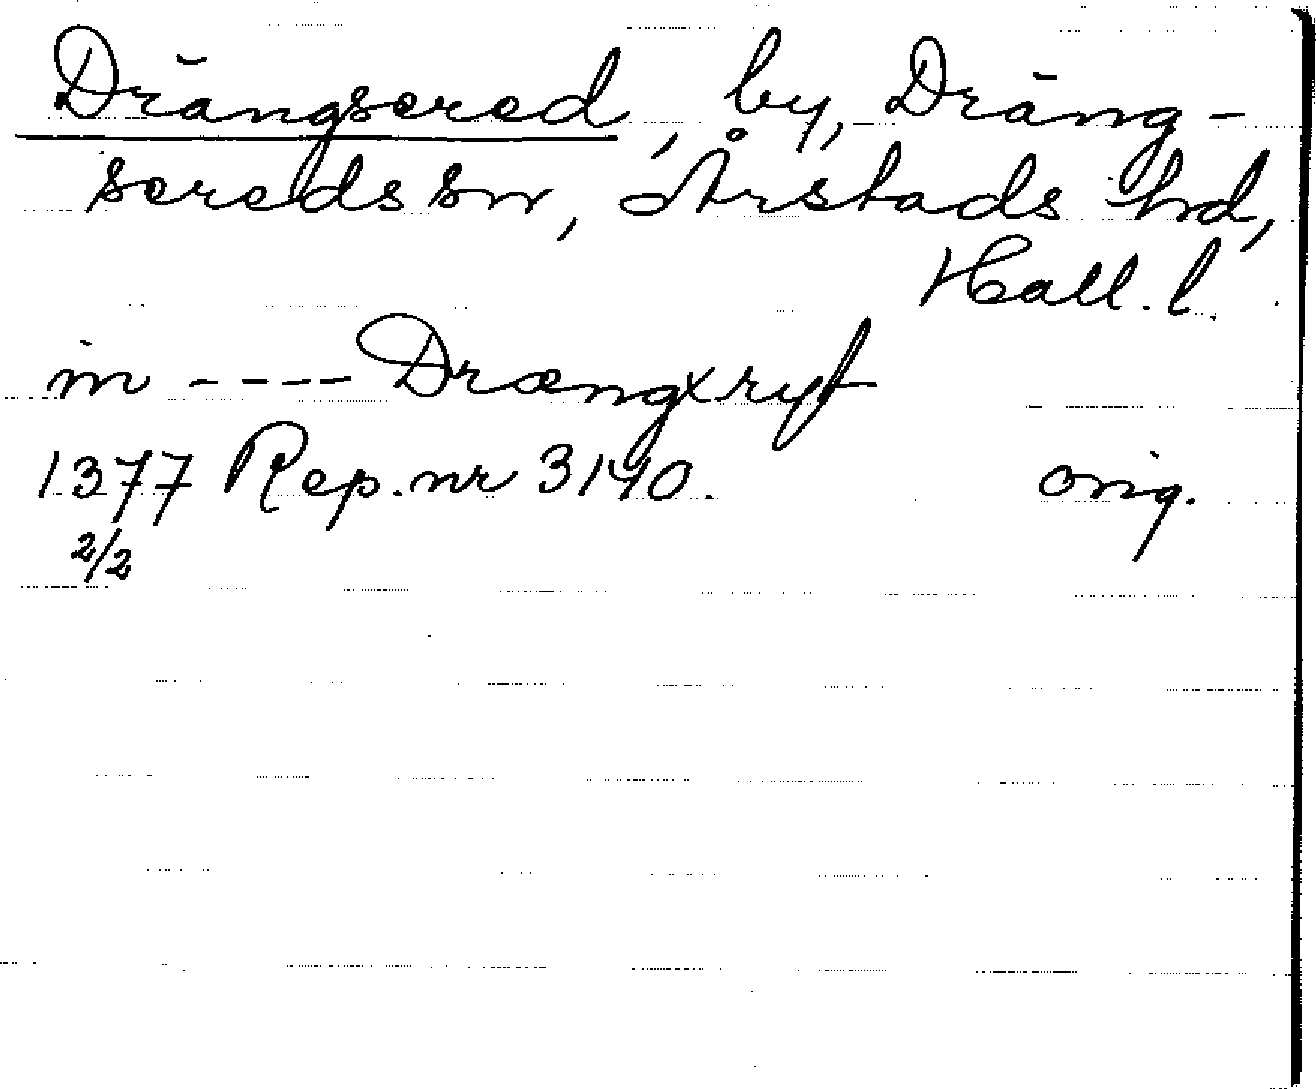 Drängsered, by, Dräng-
seredssn, Årstads hd,
Hall. l.
in ---- Drængxryt
1377 Rep. nr 3140. orig.
2/2